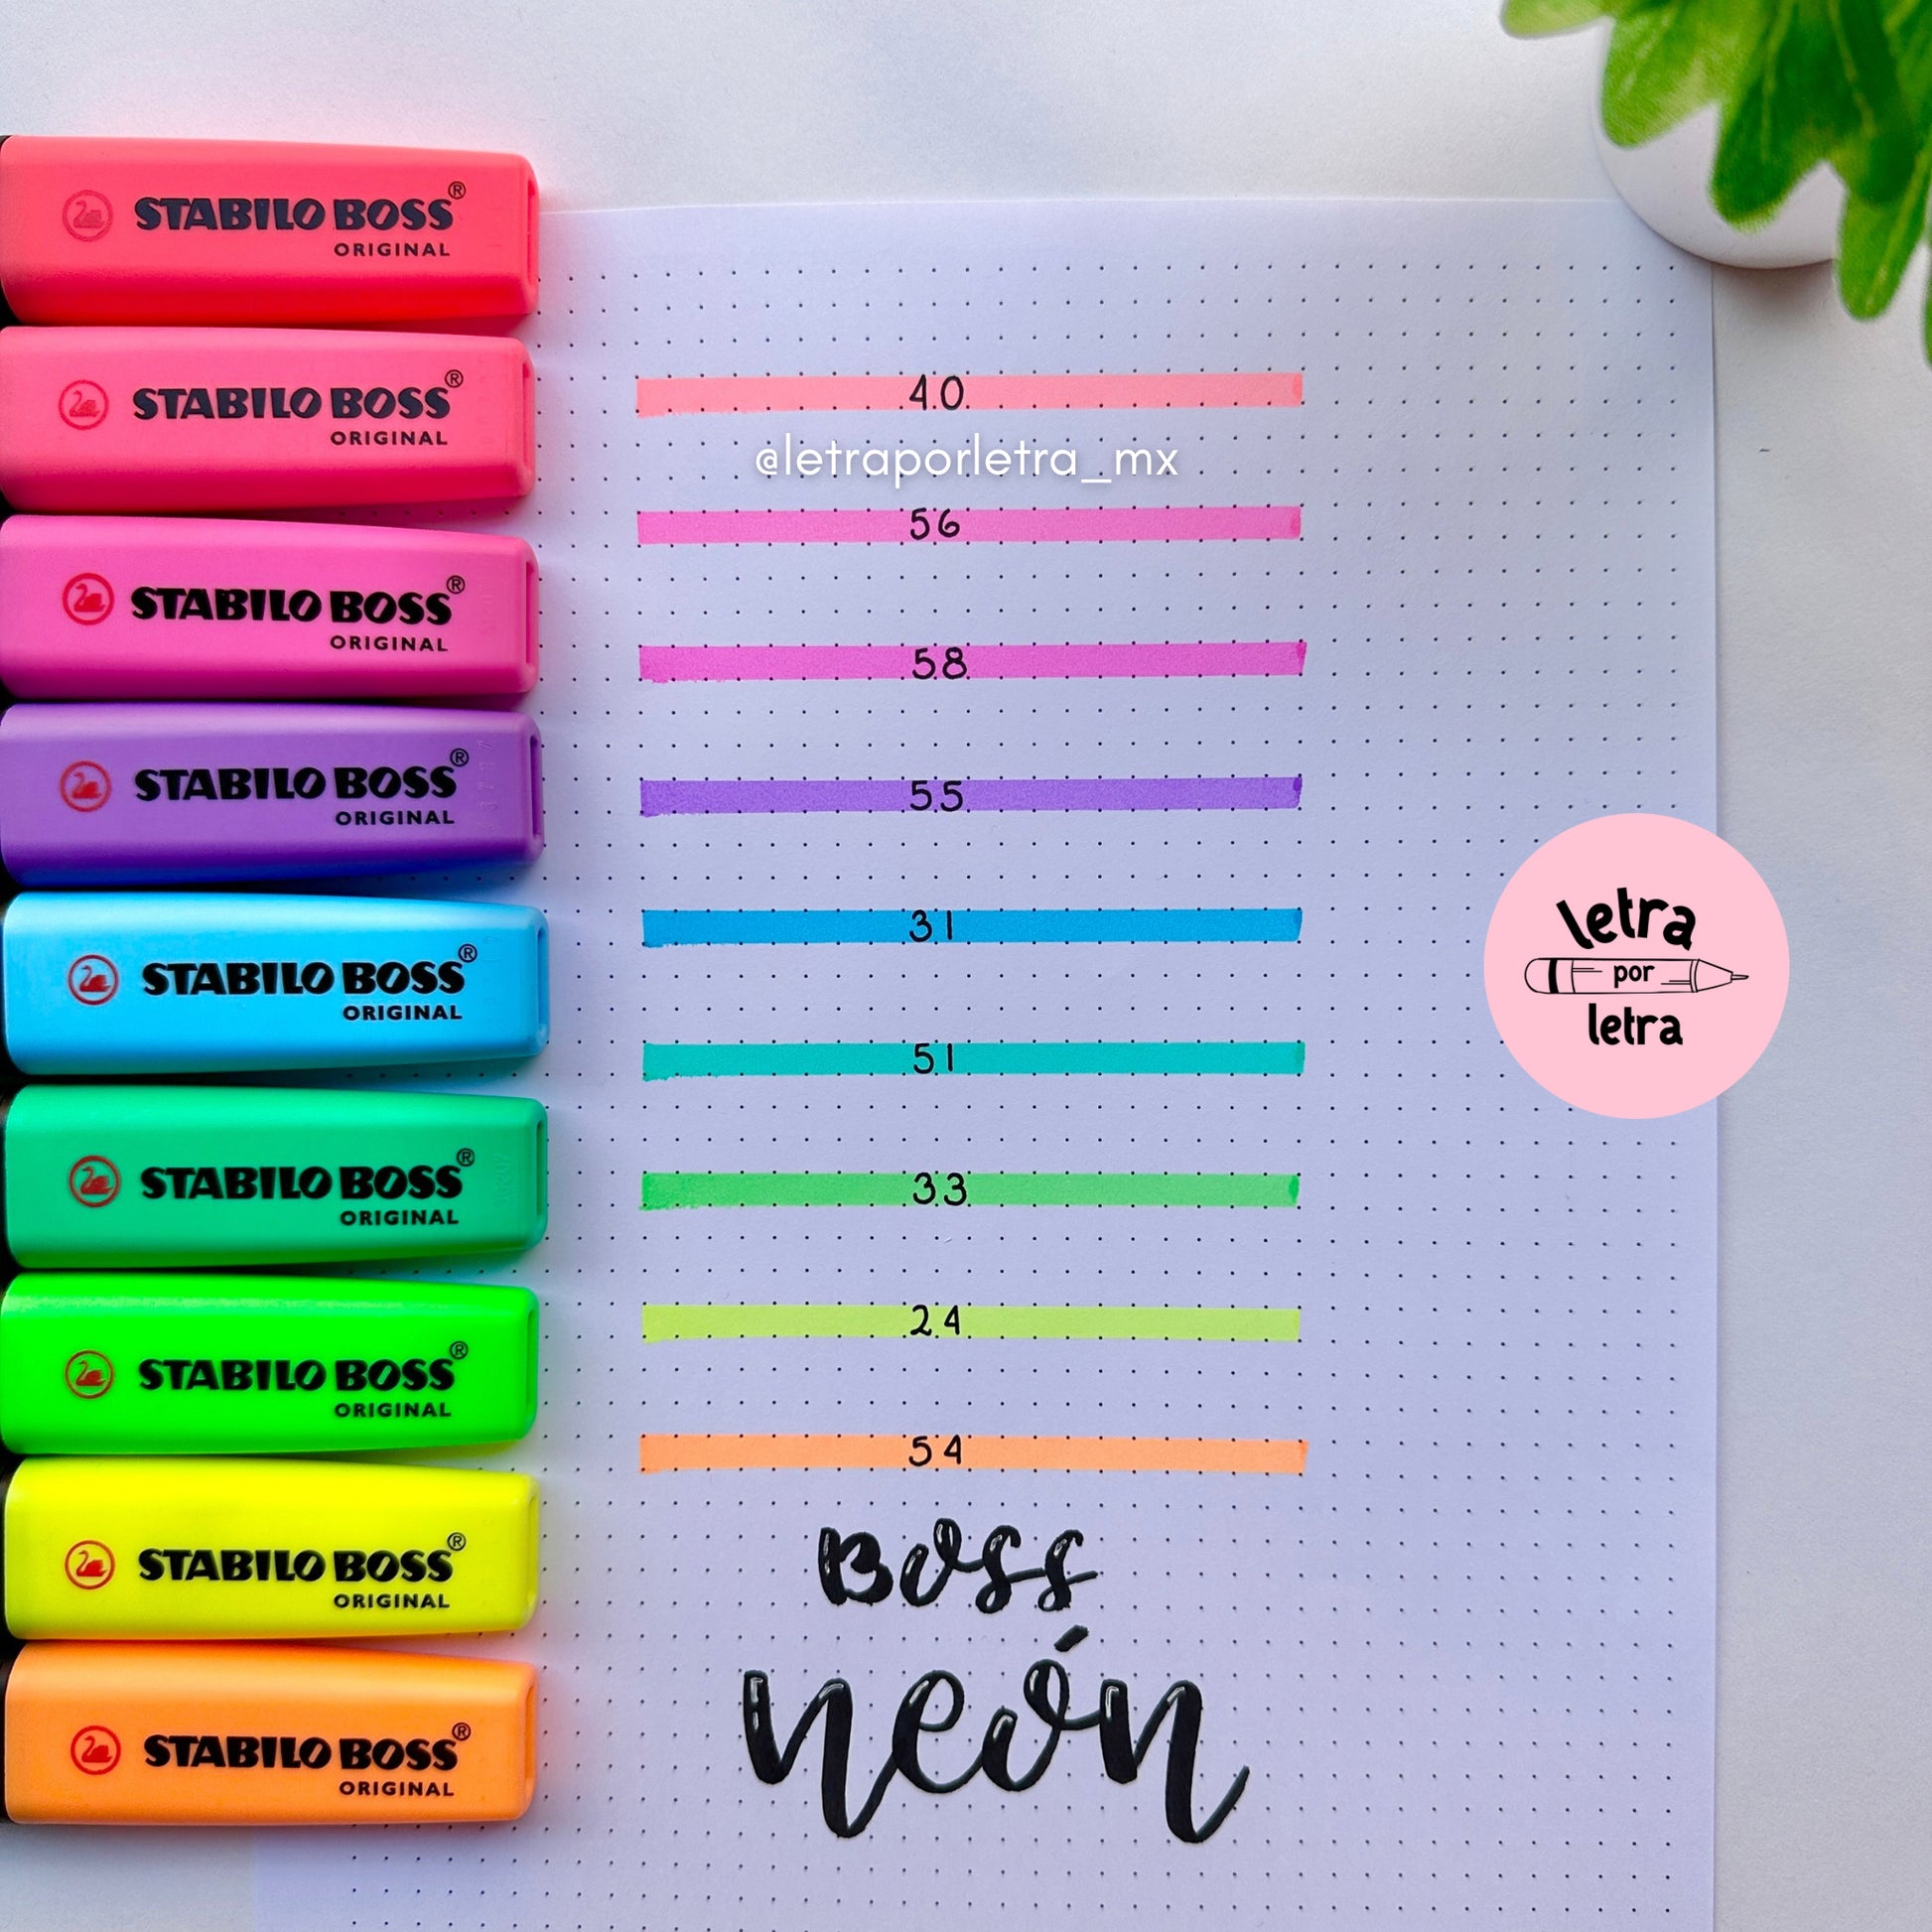 STABILO BOSS®
ORIGINAL
STABILO BOSS®
ORIGINAL
STABILO BOSS®
ORIGINAL
STABILO BOSS®
ORIGINAL
STABILO BOSS®
ORIGINAL
STABILO BOSS®
ORIGINAL
STABILO BOSS®
ORIGINAL
STABILO BOSS®
ORIGINAL
STABILO BOSS®
ORIGINAL
40
@letraporletra_mx
56
58
55
31
51
33
24
54
Boss
neón
letra
por
letra